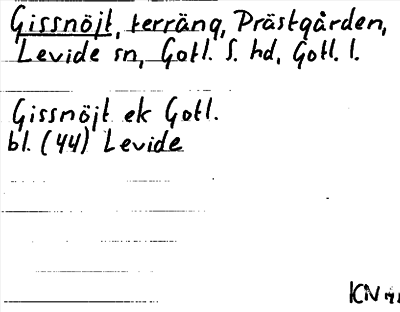 Gissnöjt, terräng, Prästgården,
Levide sn, Gotl. S. hd, Gotl. l.
Gissnöjt ek Gotl.
bl. (44) Levide
ICN